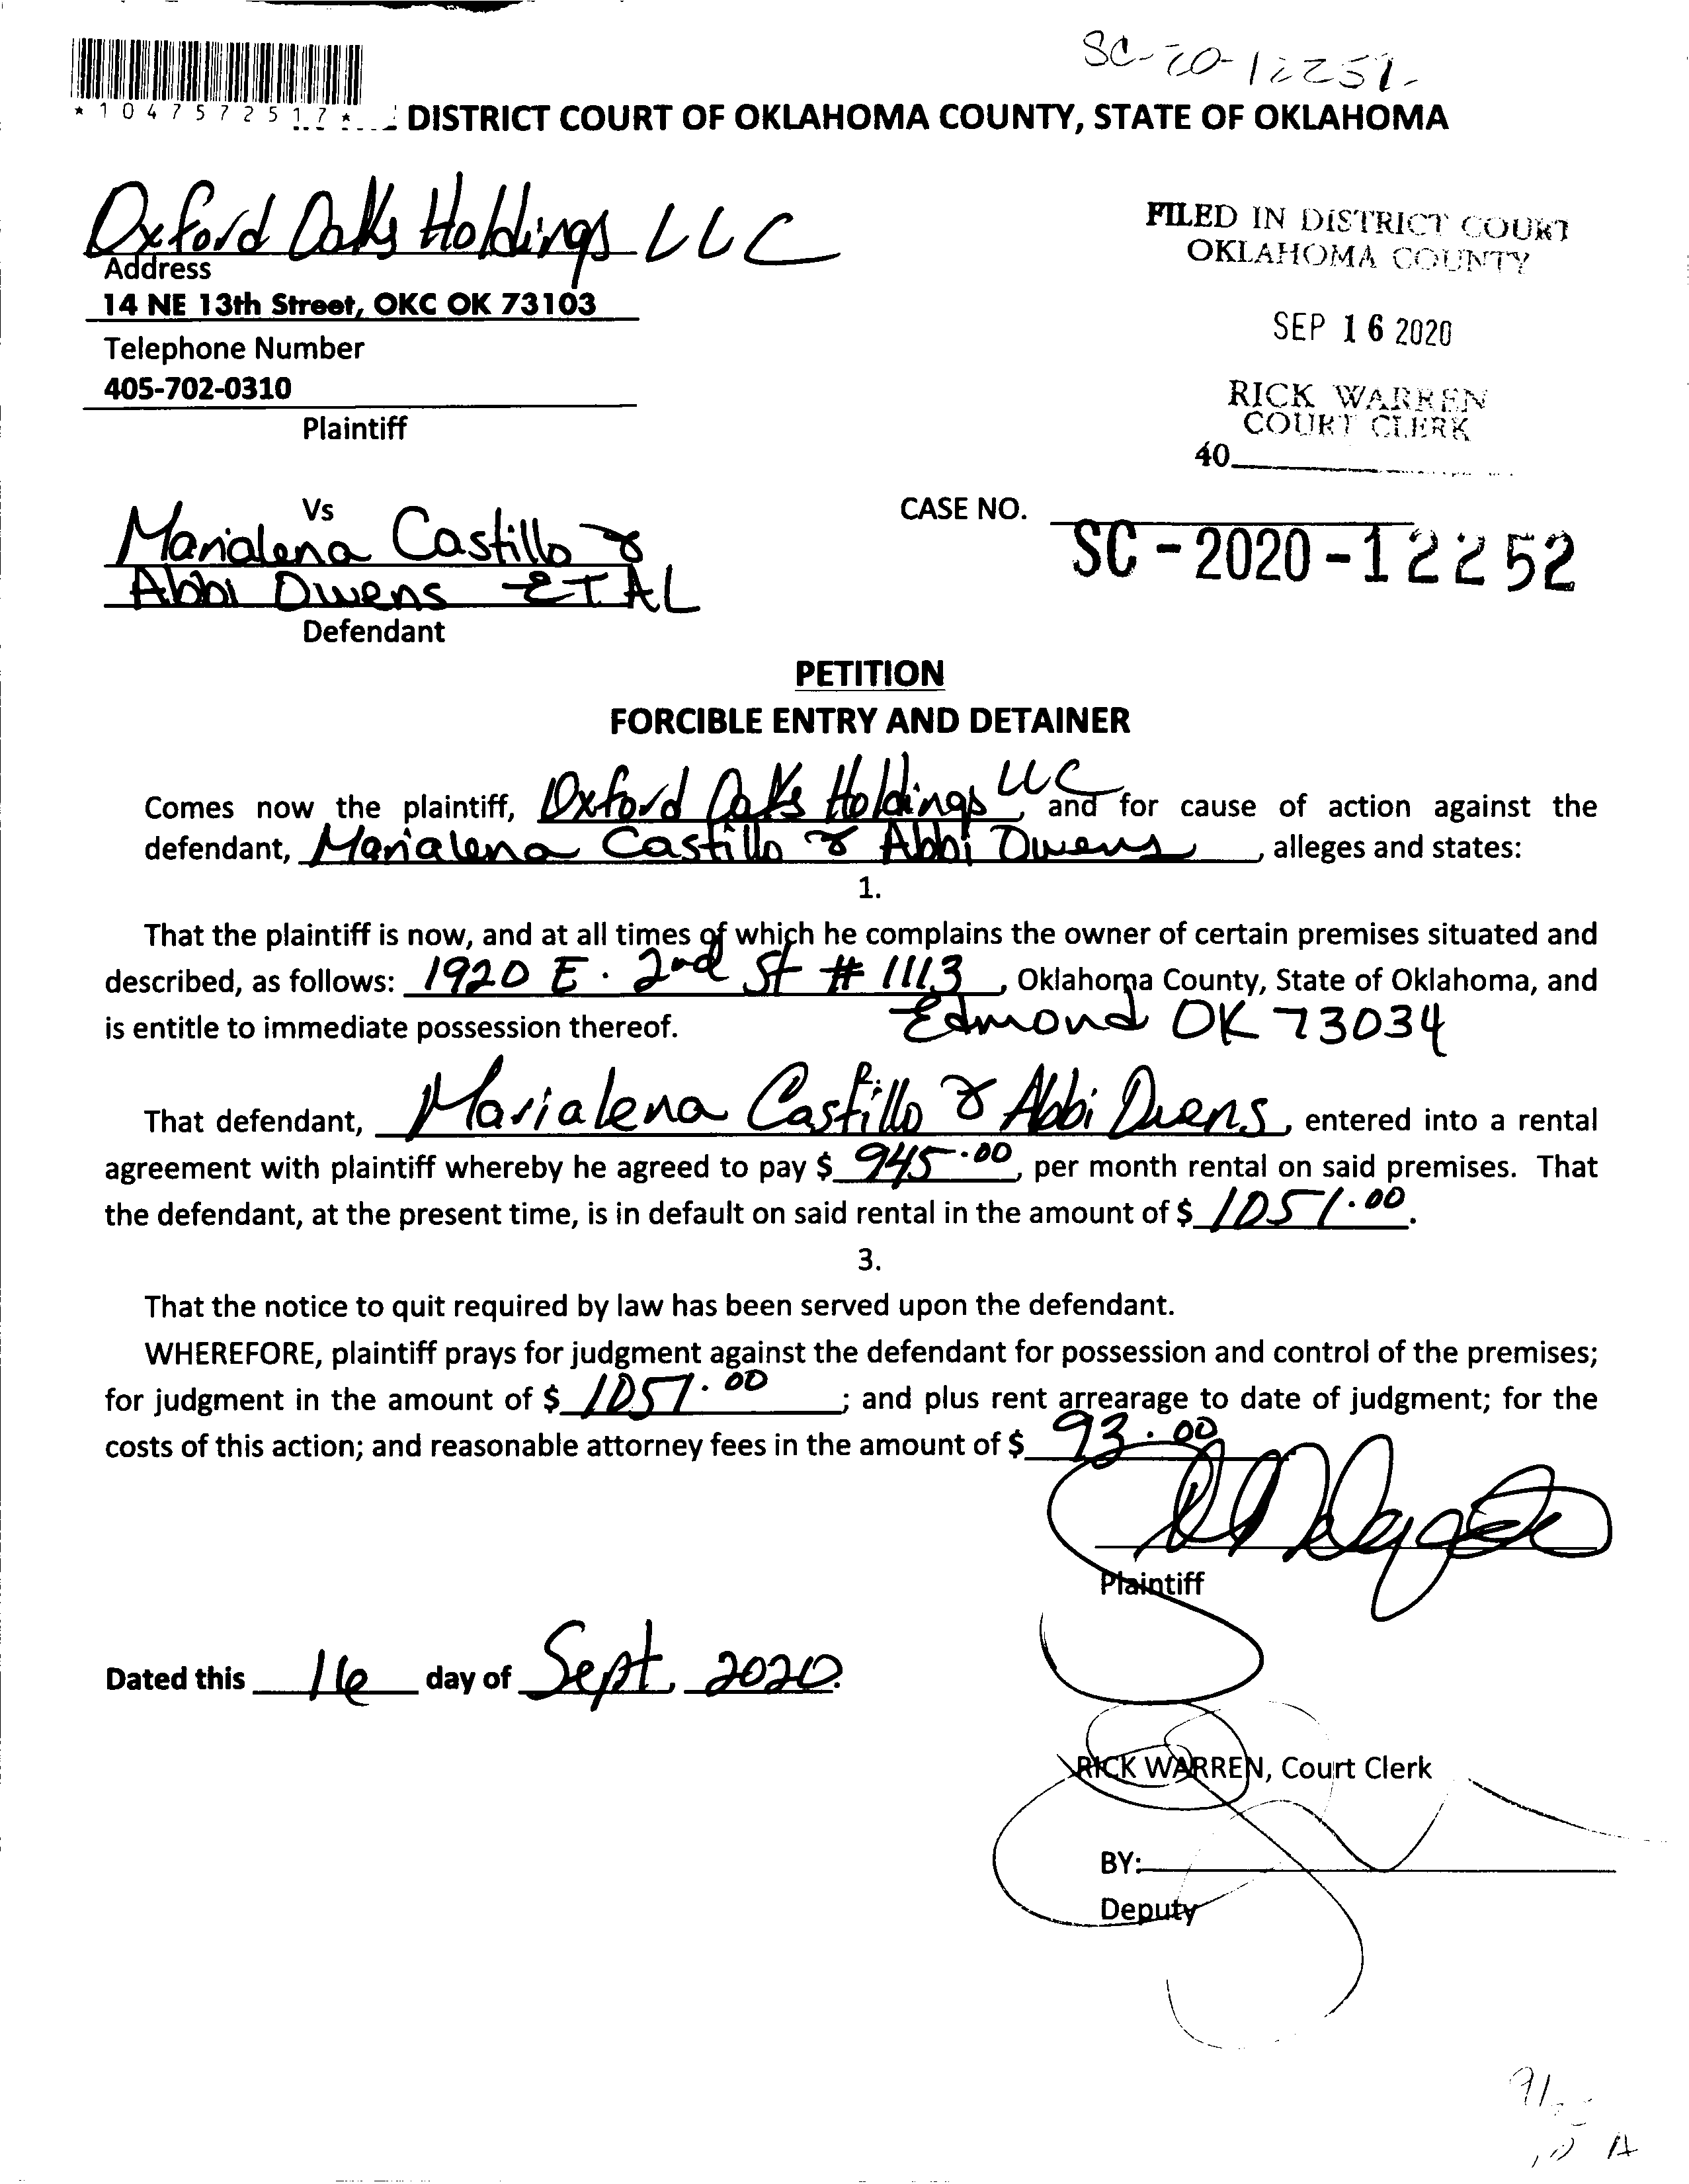 *1047572517*
DISTRICT COURT OF OKLAHOMA COUNTY, STATE OF OKLAHOMA
Oxford Oaks Holdings LLC
Address
14 NE 13th Street, OKC OK 73103
Telephone Number
405-702-0310
Plaintiff
FILED IN DISTRICT COURT
OKLAHOMA COUNTY
SEP 16 2020
RICK WARREN
COURT CLERK
40
Vs
Marialena Castillo &
Abbi Owens ET AL
Defendant
CASE NO.
SC-2020-12252
PETITION
FORCIBLE ENTRY AND DETAINER
Comes now the plaintiff, Oxford Oaks Holdings LLC, and for cause of action against the
defendant, Marialena Castillo & Abbi Owens, alleges and states:
1.
That the plaintiff is now, and at all times of which he complains the owner of certain premises situated and
described, as follows: 1920 E. 2nd St # 1113, Oklahoma County, State of Oklahoma, and
is entitle to immediate possession thereof. Edmond OK 73034
That defendant, Marialena Castillo & Abbi Owens, entered into a rental
agreement with plaintiff whereby he agreed to pay $ 945.00, per month rental on said premises. That
the defendant, at the present time, is in default on said rental in the amount of $ 1051.00.
3.
That the notice to quit required by law has been served upon the defendant.
WHEREFORE, plaintiff prays for judgment against the defendant for possession and control of the premises;
for judgment in the amount of $ 1051.00; and plus rent arrearage to date of judgment; for the
costs of this action; and reasonable attorney fees in the amount of $ 93.00
Plaintiff
Dated this 16 day of Sept. 2020.
RICK WARREN, Court Clerk
BY:
Deputy